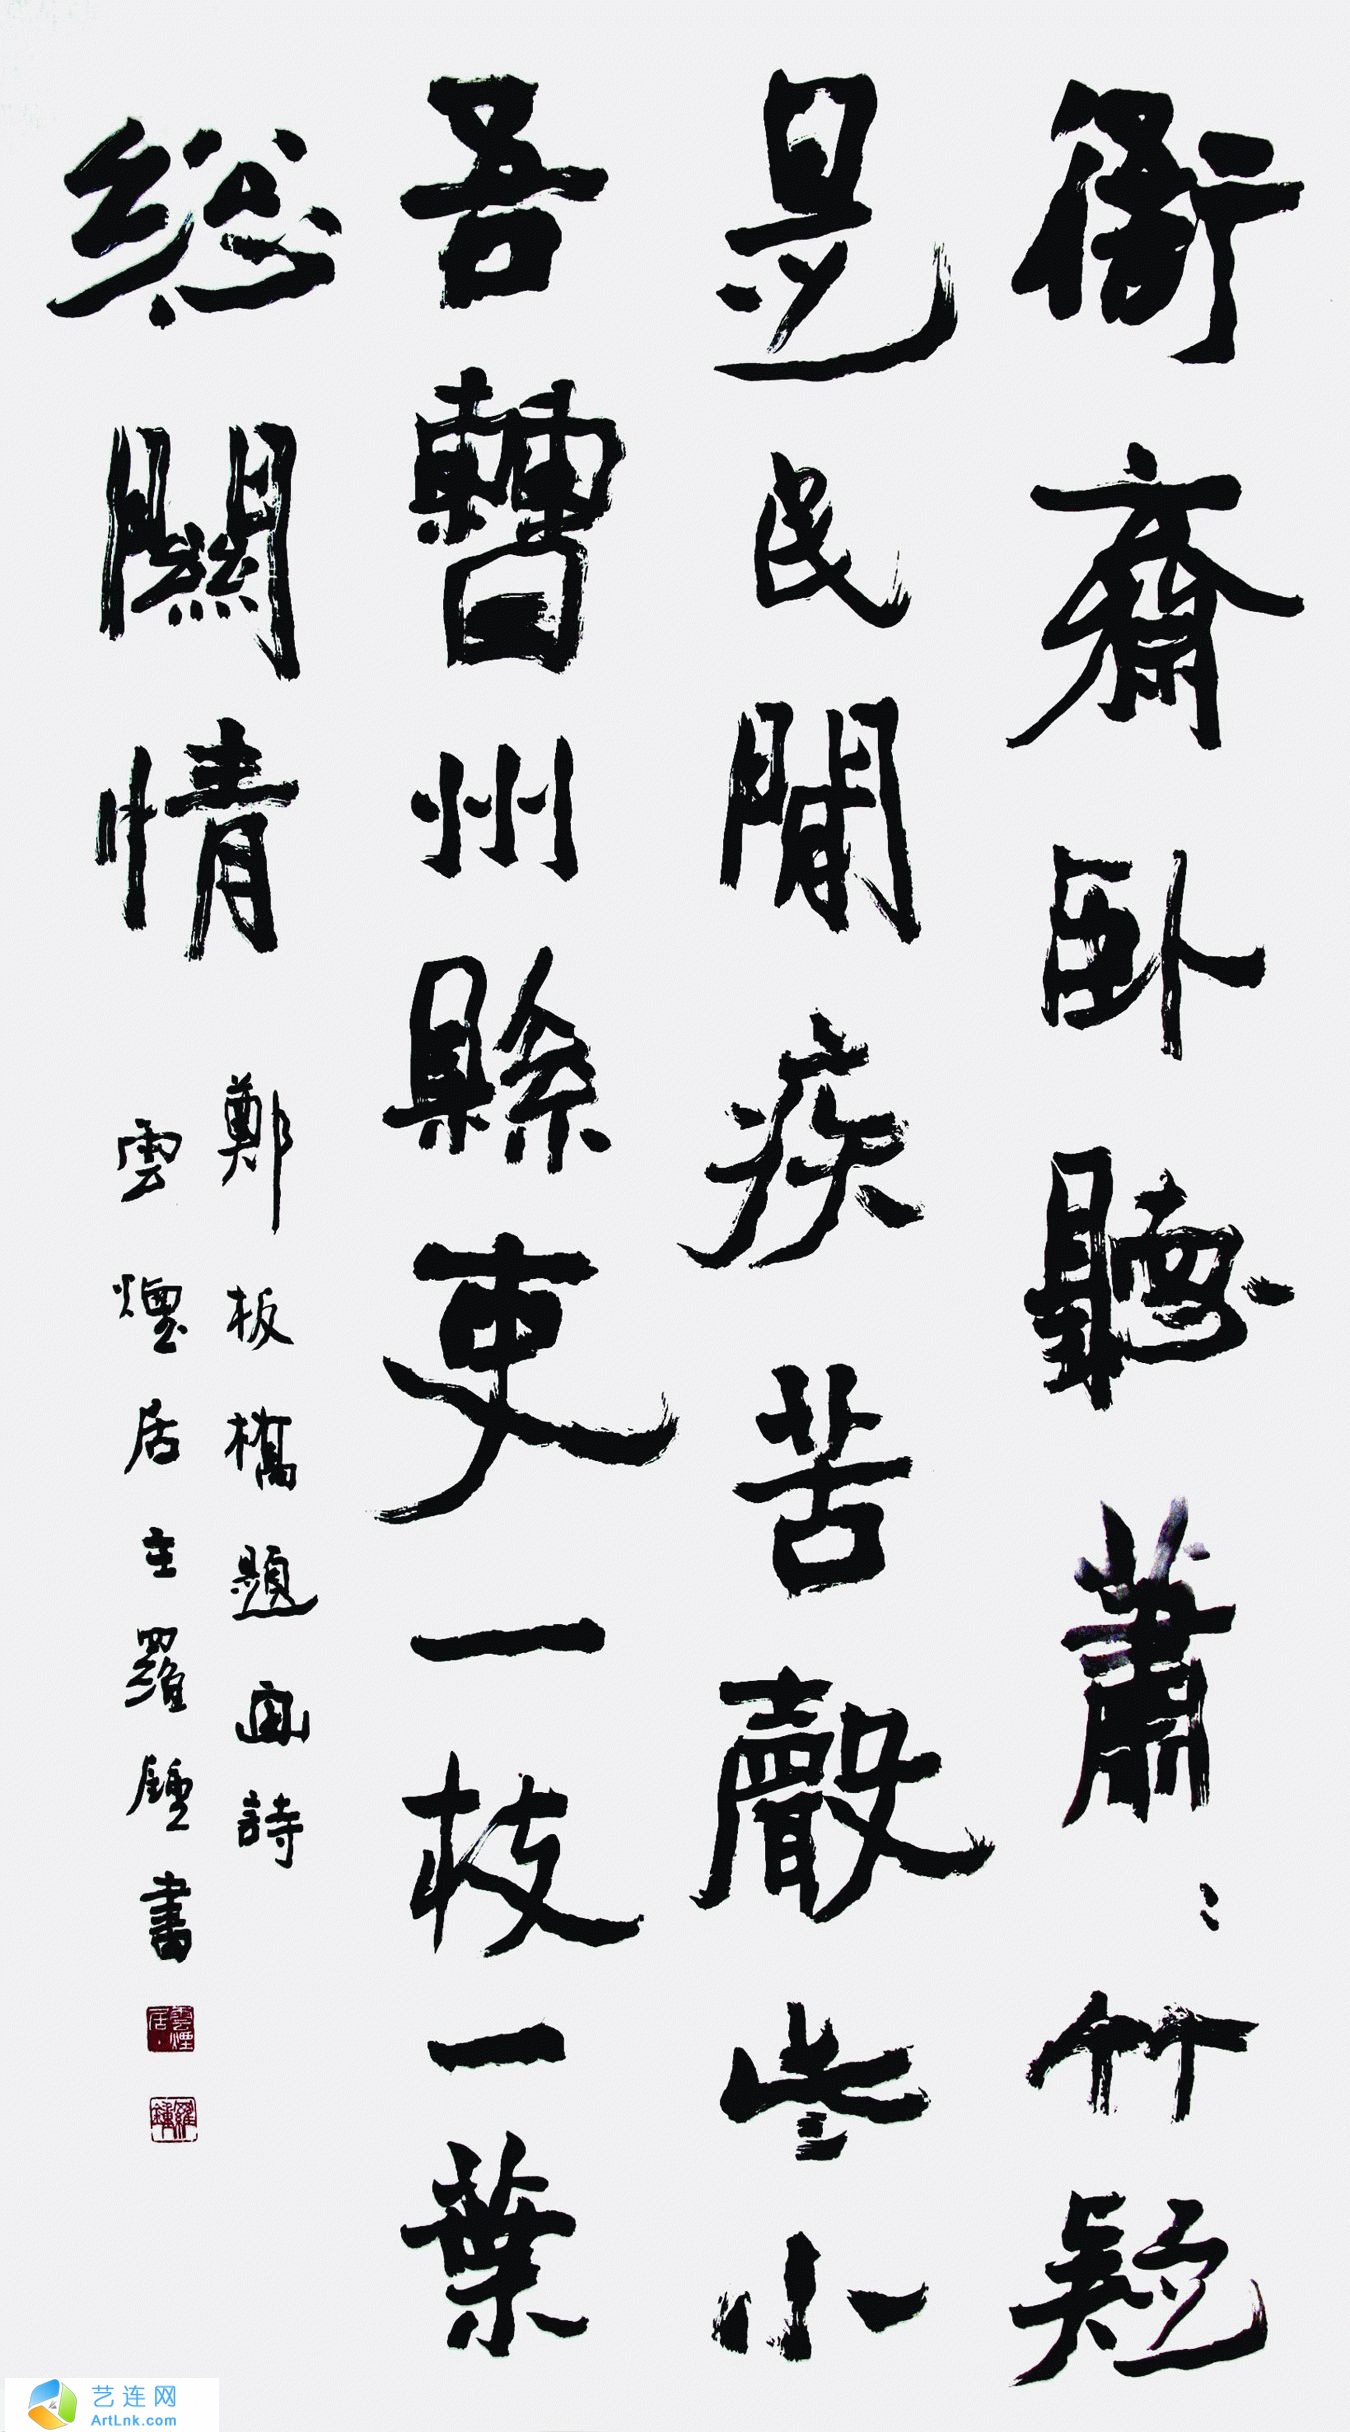 衙齋卧聽蕭〻竹疑
是民間疾苦聲些小
吾曹州縣吏一枝一葉
總關情
鄭板橋題画詩
雲煙居主羅鍾書
雲煙居
羅鍾
艺连网
ArtLnk.com